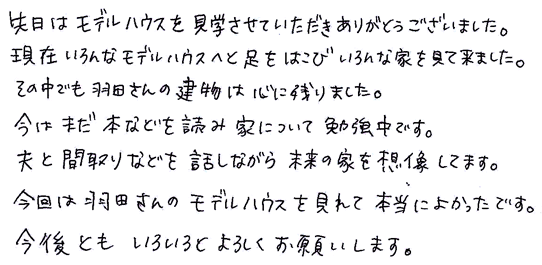 先日はモデルハウスを見学させていただきありがとうございました。
現在いろんなモデルハウスへと足をはこびいろんな家を見て来ました。
その中でも羽田さんの建物は心に残りました。
今はまだ本などを読み家について勉強中です。
夫と間取りなどを話しながら未来の家を想像してます。
今回は羽田さんのモデルハウスを見れて本当によかったです。
今後ともいろいろとよろしくお願いします。